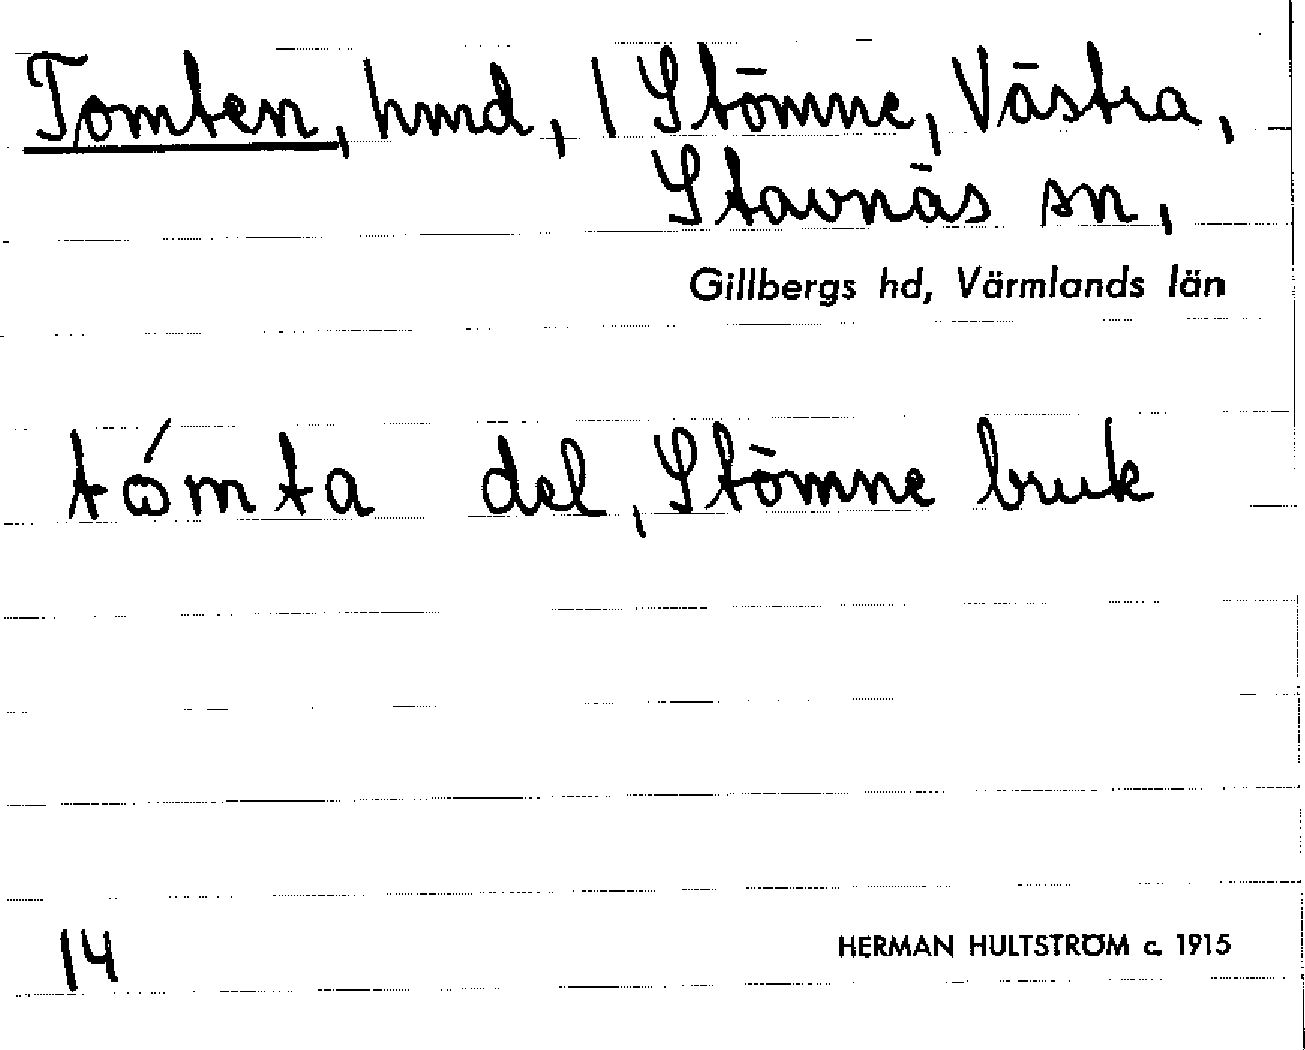 Tomten, hmd, 1 Stömne, Västra,
Stavnäs sn,
Gillbergs hd, Värmlands län
tɷ́mta del, Stömne bruk
14
HERMAN HULTSTRÖM c. 1915